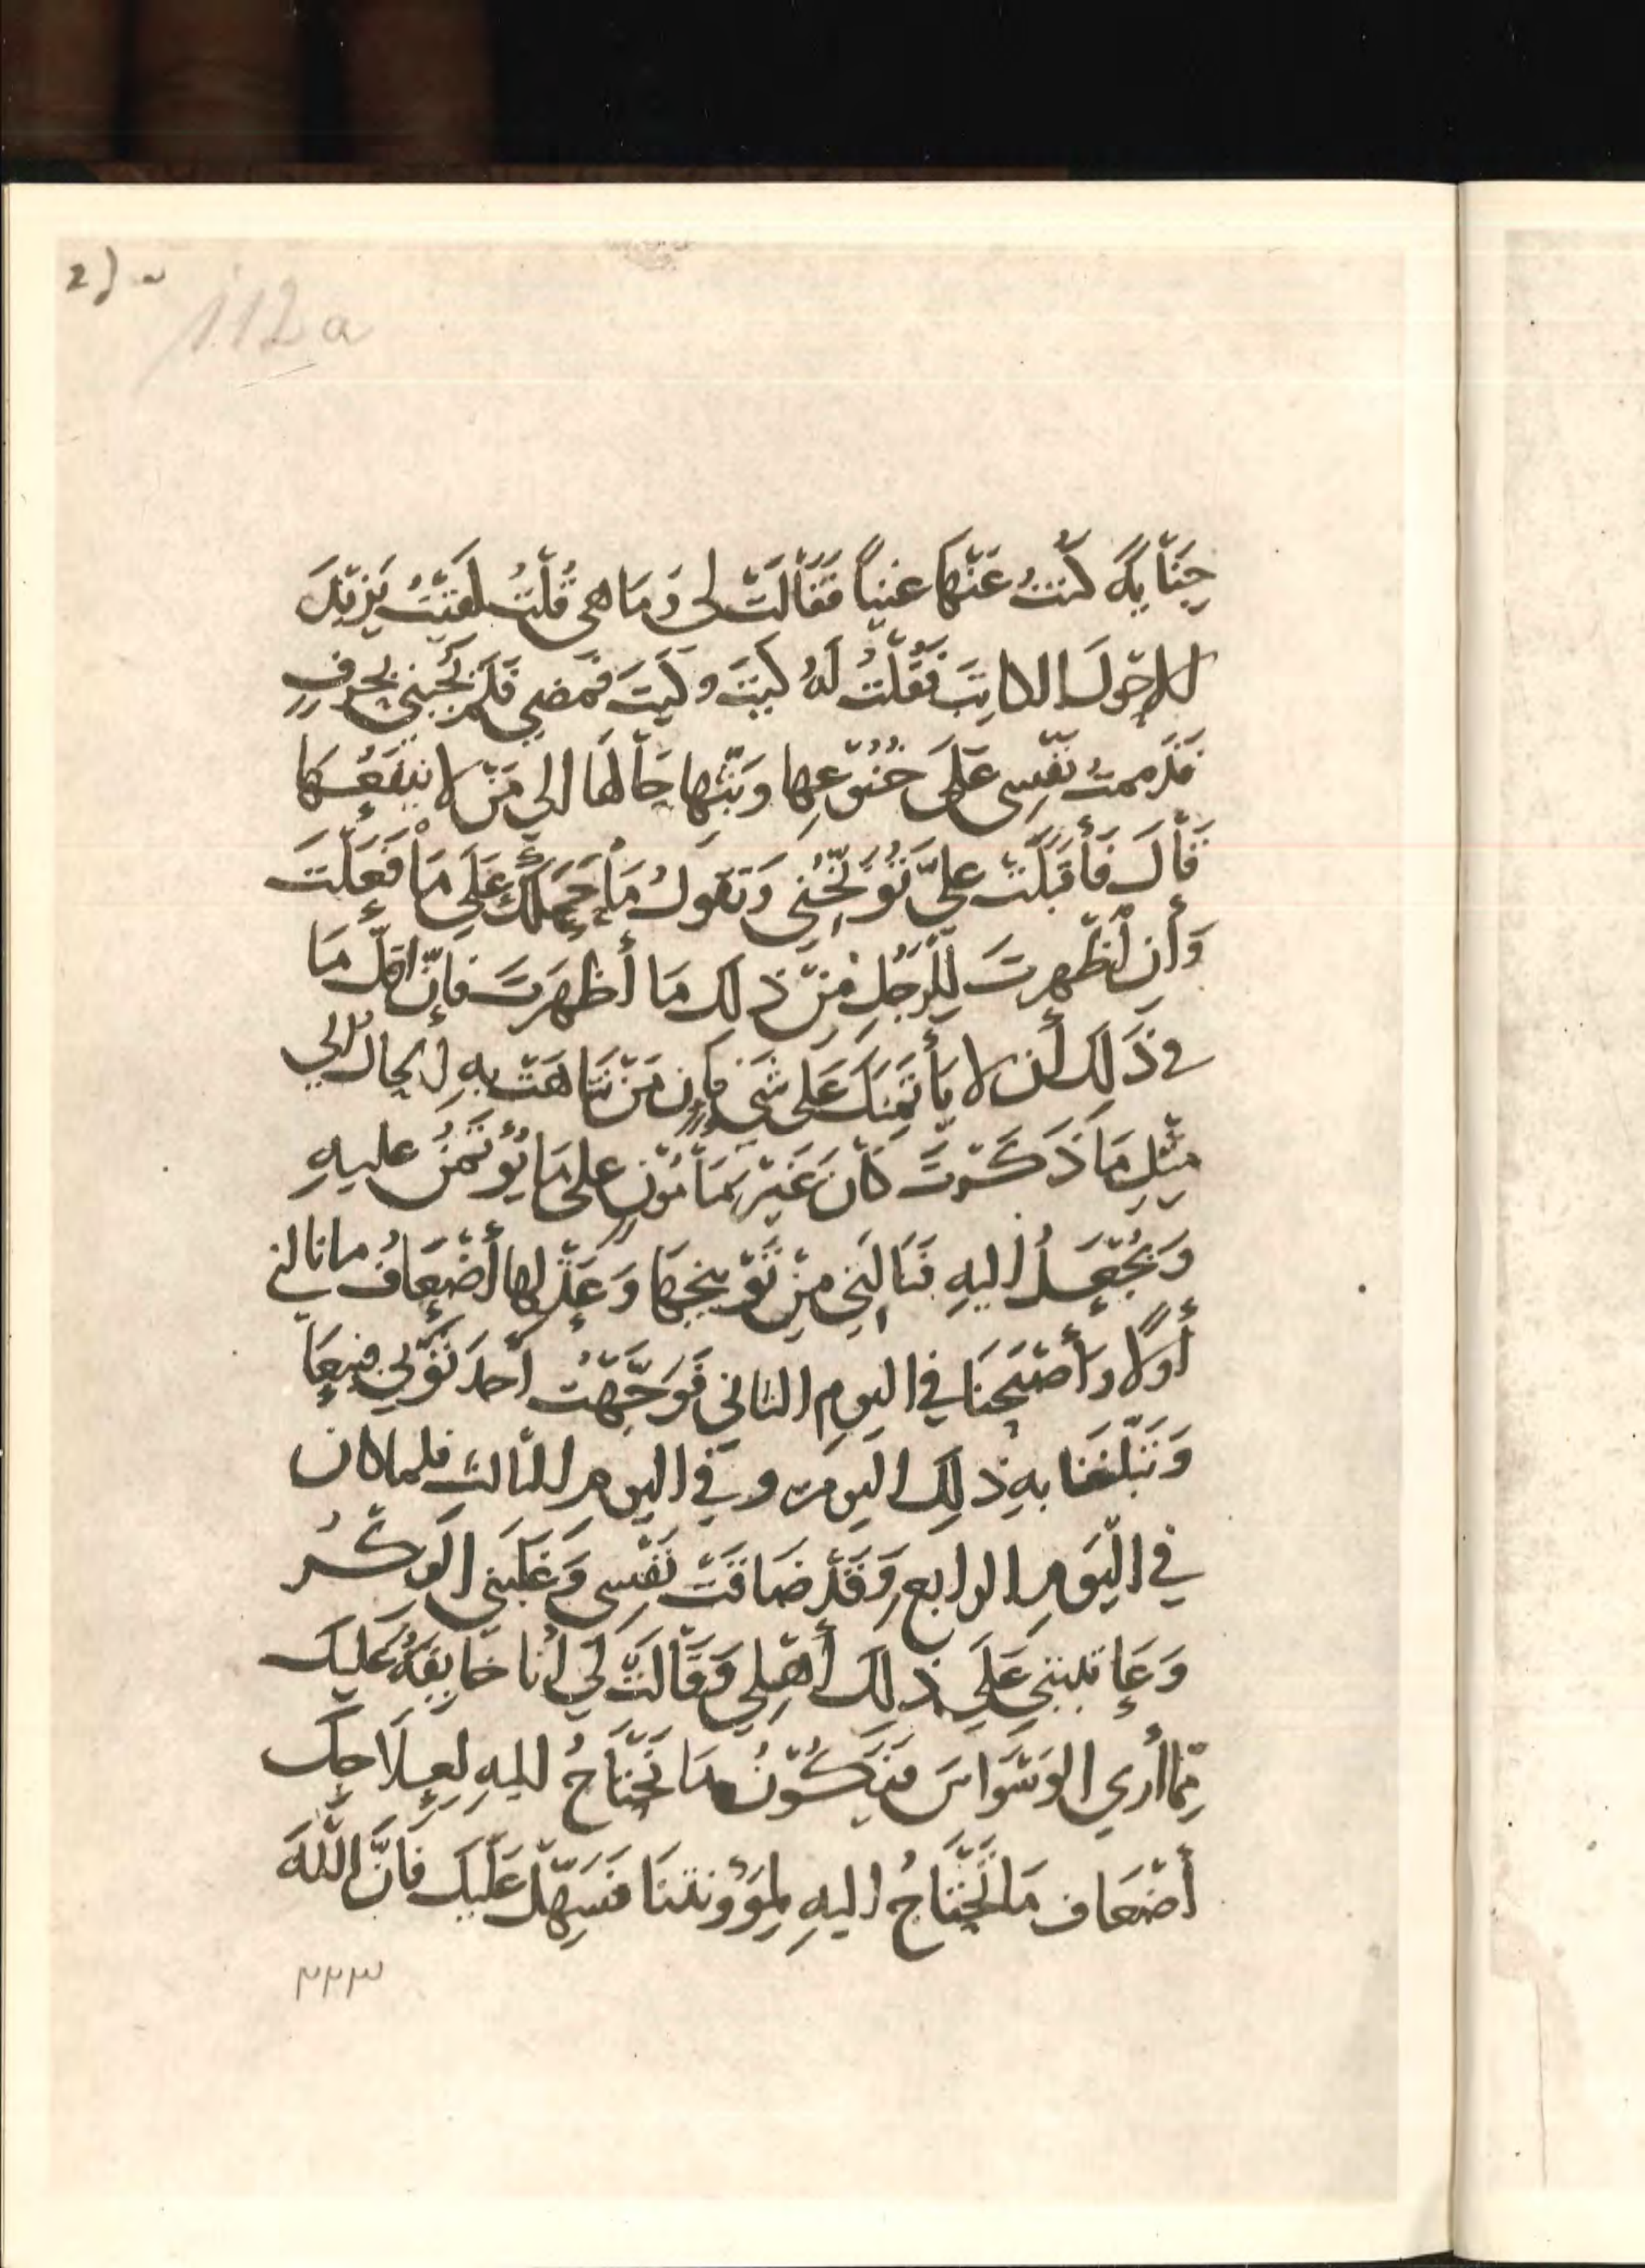 112a
جِنَايةً كُنتُ عَنْهَا غَنياً فَقَالَتْ لي وَمَا هي قُلْتُ لَقيْتُ يَزيدَ
الاحْوَلَ الكاتِبَ فَقُلْتُ لَهُ كَيتَ وكَيتَ فمَضي فَلَمْ يُجِبْني بحَرْفٍ
فَذَممتُ نَفْسِى عَلَى خُنُوْعِهَا وبَثِّهَا حَالَهَا الى مَنْ لا يَنفَعُهَا
قَالَ فَأَقبَلَتْ عليَّ تُوَبِّخُنِي وَتقولُ مَا حَمَلَكَ عَلَي مَا فَعَلْتَ
وَأَن أَظْهرتَ لِلرَجُلِ مِنْ ذلِكَ مَا أَظهَرتَ فَإِنَّ اقلَّ مَا
في ذَلِكَ أَن لا يَأتَمِنَكَ عَلى شَيءٍ فإن مَنْ تنَاهَتْ بهِ الحالُ الي
مِثْلِ مَا ذَكَرْتَ كَانَ غَيْرَ مَأمُوْنٍ على مَا يُؤتَمَنُ عليهِ
وَيُجْعَلُ اليهِ فَنَالَنِي مِنْ تَوْبيخِهَا وَعَذْلِها أَضْعَافُ ما نالني
أَولاً وأَصْبَحْنَا في اليومِ الثاني فَوَجَّهْتُ أحدَ ثَوْبَي فبِيعَ
وَتَبَلَّغنَا بهِ ذلِكَ اليومَ وفي اليومِ الثالث فلما كان
في الْيَومِ الرابعِ وَقَدْ ضَاقَتْ نَفْسِى وَغَلَبَني الفِكْرُ
وَعَاتبتني عَلَى ذلِكَ أَهْلِي وَقَالَتْ لي أَنا خَايفَةٌ عَليكَ
مِمَّا أَرى الوَسْوَاسَ فيَكُوْنُ مَا نَحْتَاجُ اليهِ لعِلَاجِكَ
أَضْعَاف مَا نَحْتَاجُ اليهِ لِمؤونتنَا فسَهِّلْ عَلَيكَ فَانَّ اللّهَ
٢٢٣